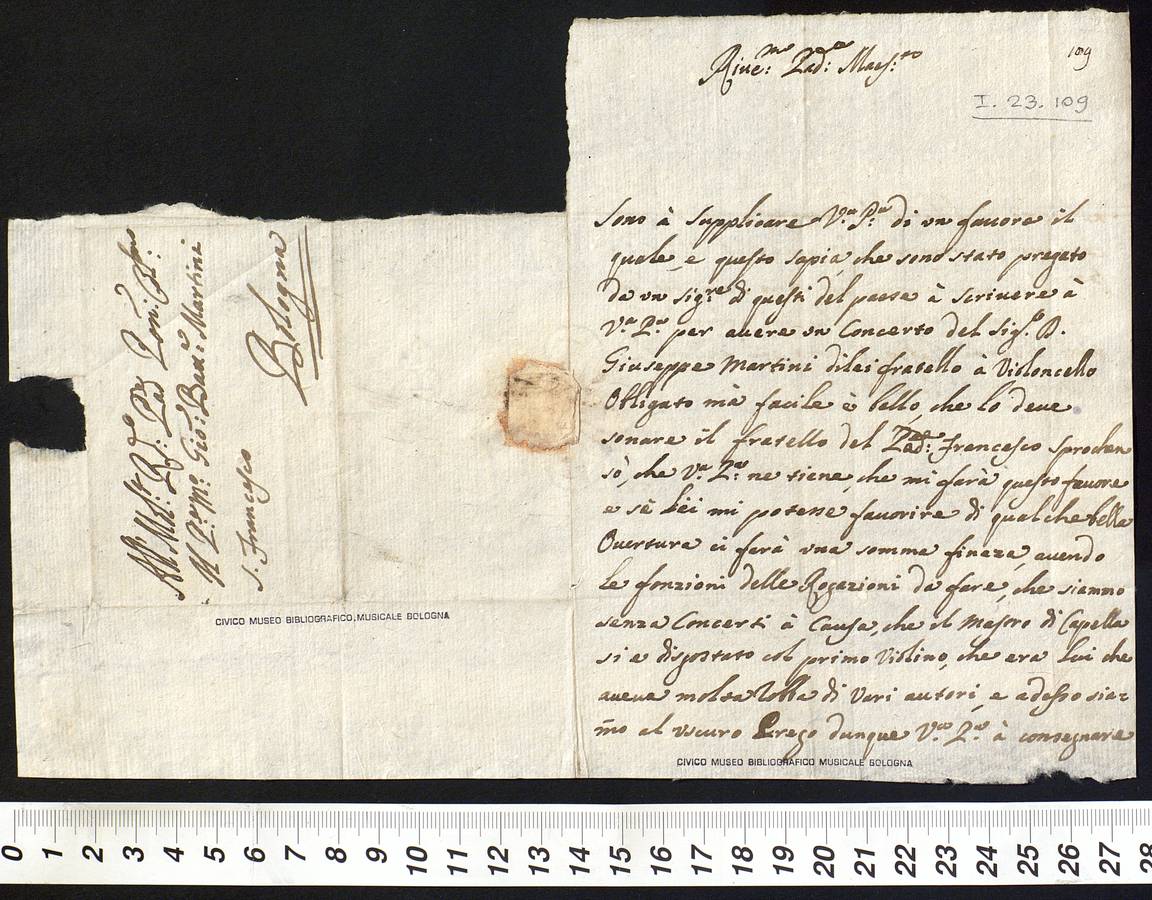 All M.to R.do Pad. Pron. Col.mo
Il P. M.ro Gio: Batta: Martini
S. Francesco
Bologna
CIVICO MUSEO BIBLIOGRAFICO MUSICALE BOLOGNA
109
Rive:mo Pad:e Maes:tro
I. 23. 109
Sono à supplicare V.a P.tà di un favore il
quale, e questo sapia, che sono stato pregato
da un sig.re di questi del paese à scrivere à
V.a P.tà per avere un Concerto del Sig.r D.
Giuseppe Martini di lei fratello à Violoncello
Obligato mà facile è bello, che lo deve
sonare il fratello del Pad: Francesco
sò, che V.a P.tà ne tiene, che mi farà questo favore
e sè Lei mi potesse favorire di qualche bella
Overtura ci farà una somma fineza, avendo
le fonzioni delle Rogazioni da fare, che siammo
senza Concerti à Causa, che il Masoro di Capella
si e disgostato col primo Violino, che era Lui che
aveva molta Robba di Vari autori, e adesso sia=
mo al uscuro Prego dunque V.a P.tà à consegnare
CIVICO MUSEO BIBLIOGRAFICO MUSICALE BOLOGNA
0 1 2 3 4 5 6 7 8 9 10 11 12 13 14 15 16 17 18 19 20 21 22 23 24 25 26 27 28